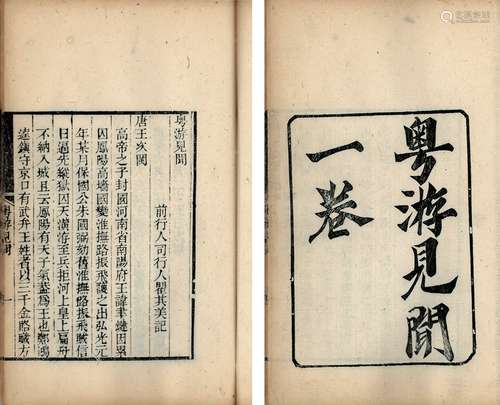 粵游見聞
一卷
粵游見聞
前行人司行人瞿其美記
唐王次閩
高帝之子封國河南省南陽府王諱聿鍵因罪
囚鳳陽高墻國變淮撫路振飛護之出弘光元
年某月保國公朱國弼劾舊淮撫路振飛賊信
日逼先縱獄囚天潢游至兵拒河上皇上扁舟
不納入城且云鳳陽有天子氣蓋為王也鄭鴻
逵鎮守京口有武弁王姓者以三千金賂職方
粵游見聞